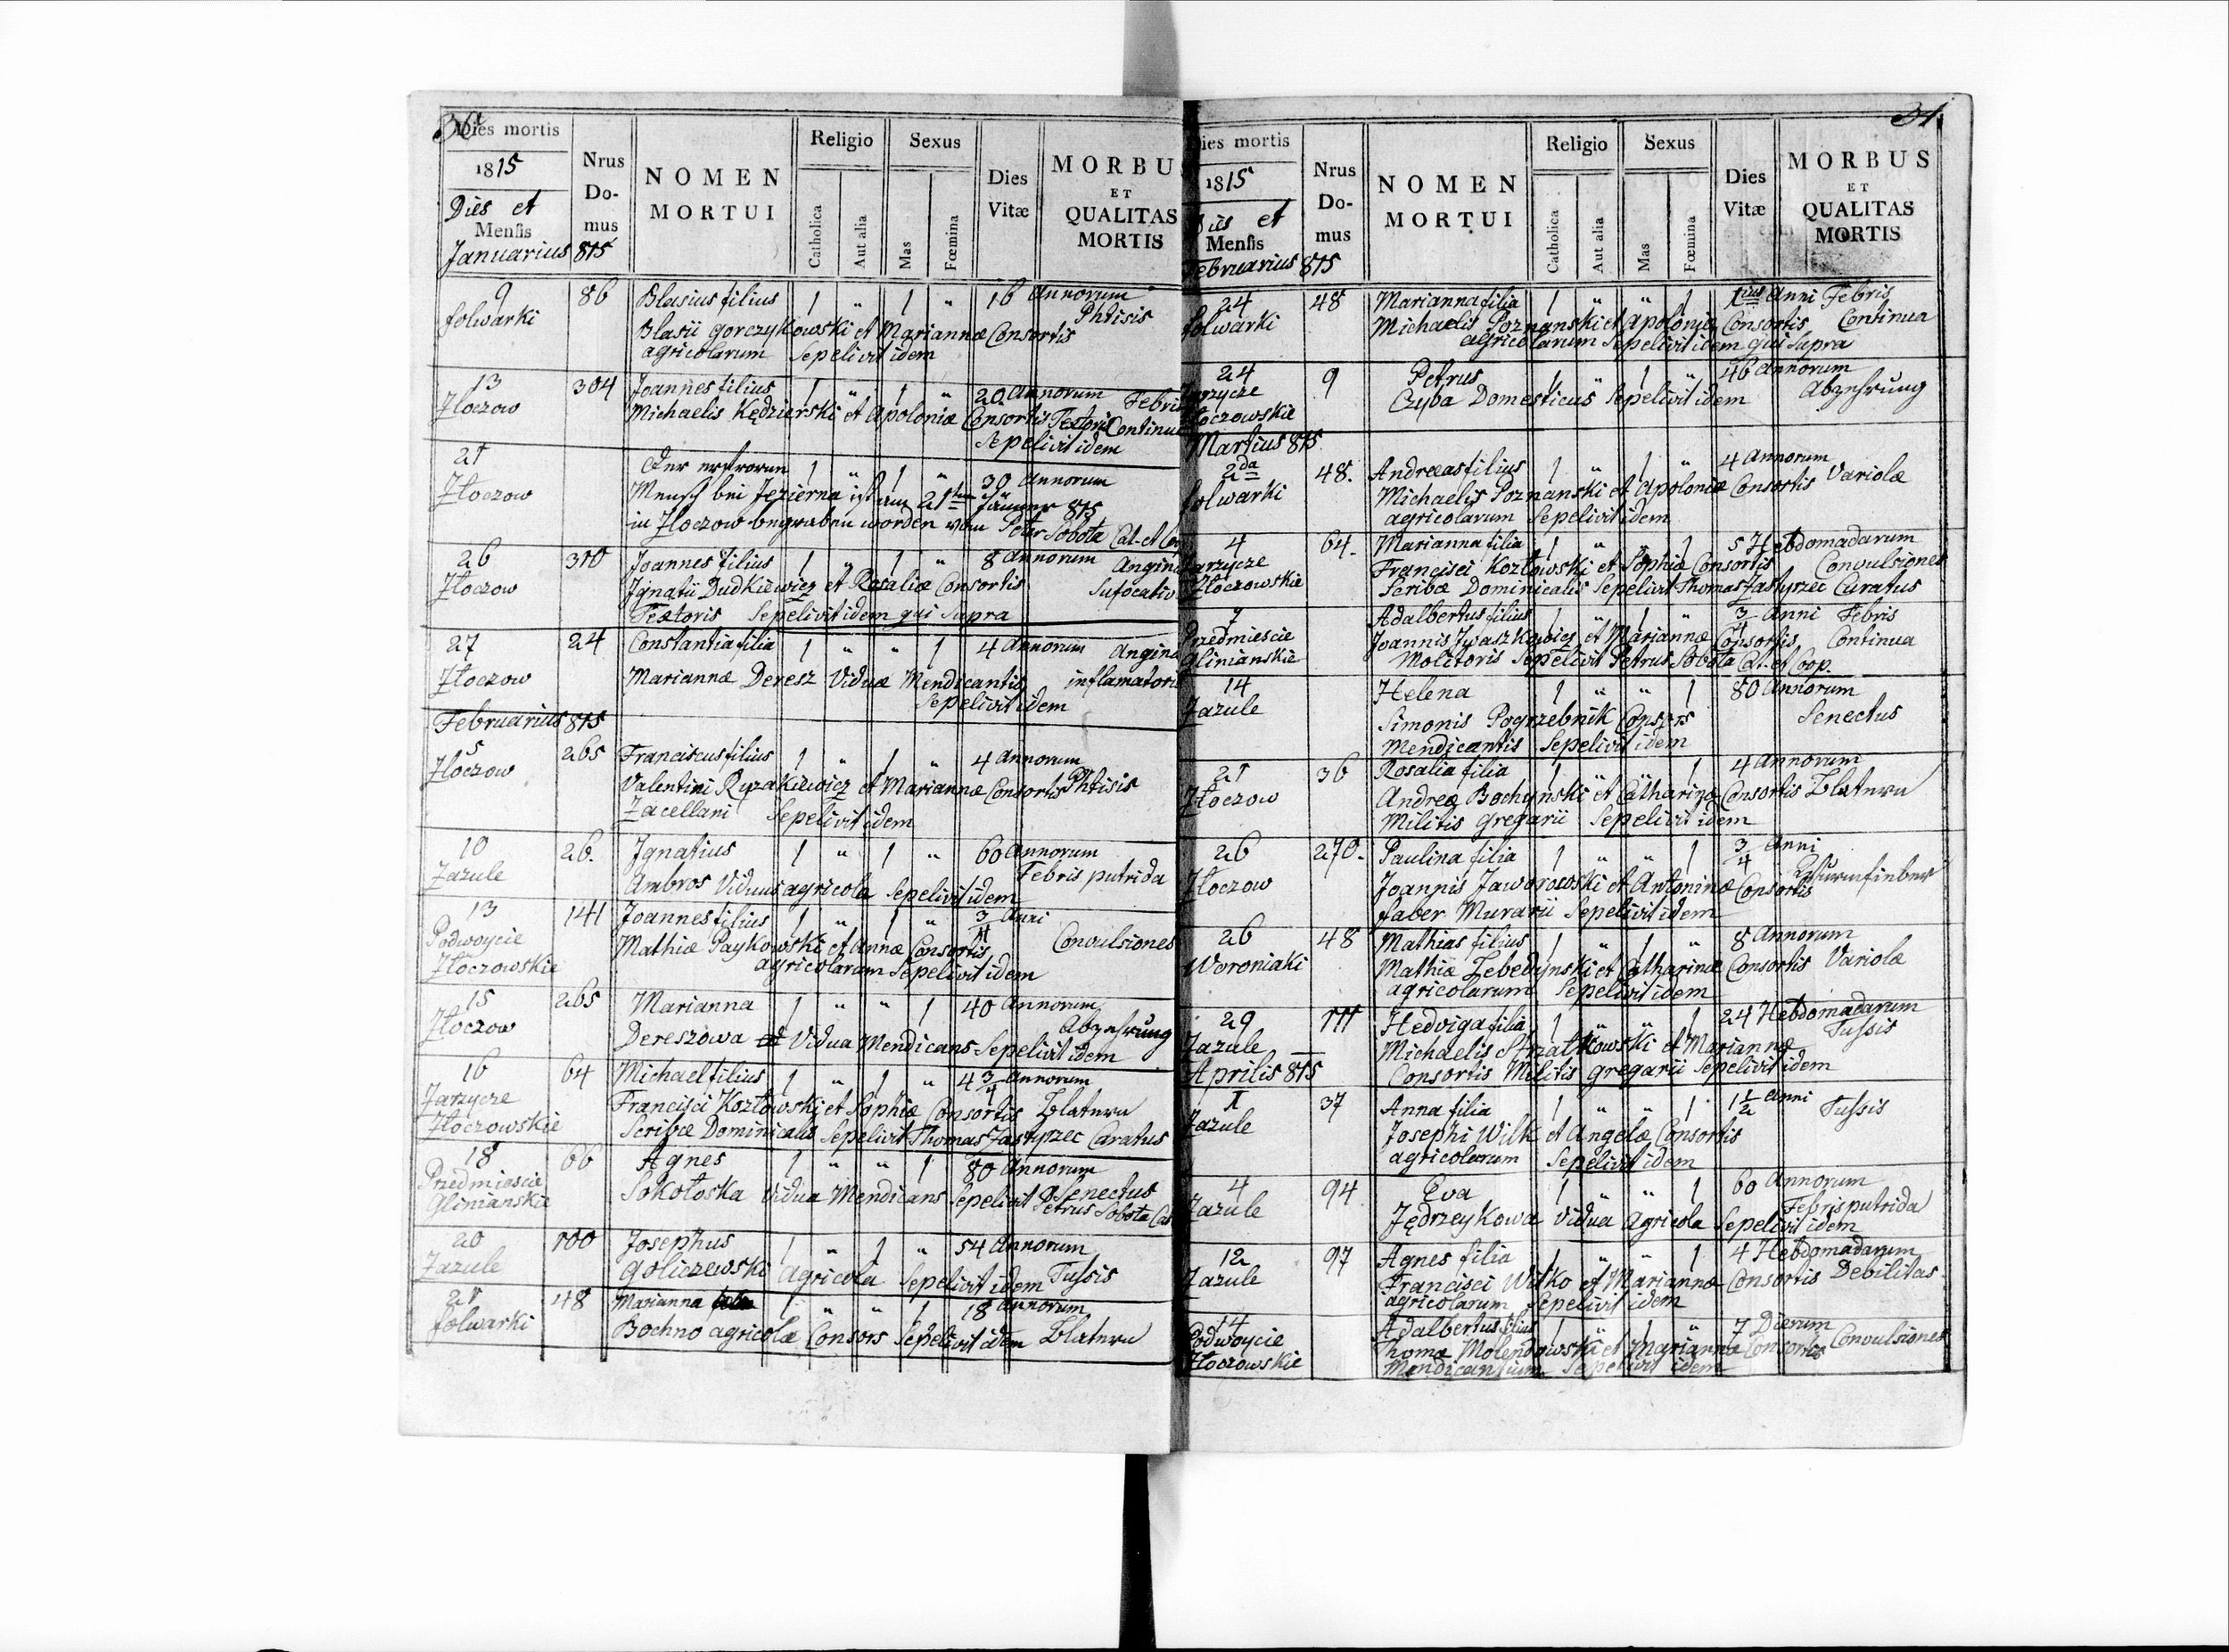 30
Dies mortis
1815
Dies et
Mensis
Januarius 815
Nrus
Do-
mus
NOMEN
MORTUI
Religio
Catholica
Aut alia
Sexus
Mas
Fœmina
Dies
Vitæ
MORBU
ET
QUALITAS
MORTIS
9 86 Blasius filius 1 " 1 " 16 Annorum
folwarki Phtisis
Blasii Gorczykowski et Mariannæ Consortis
agricolarum Sepelivit idem
13 304 Joannes filius 1 " 1 " 20 Annorum Febris
Złoczow Michaelis Kędzierski et Apoloniæ Consortis Textoris Continua
Sepelivit idem
21 Der erfrorene 1 " 1 " 30 Annorum
Złoczow Mensch bei Jezierna ist am 21ten Jänner 815
in Złoczow begraben worden vom Peter Sobota Cat. et Coo
26 310 Joannes filius 1 " 1 " 8 Annorum Angina
Złoczow Ignatii Dudkiewicz et Rosaliæ Consortis Sufocativ
Textoris Sepelivit idem qui Supra
27 24 Constantia filia 1 " " 1 4 Annorum Angina
Złoczow Mariannæ Deresz Viduæ Mendicantis inflamatori
Sepelivit idem
Februarius 815
5 265 Franciscus filius 1 " 1 " 4 Annorum
Złoczow Valentini Ryzakiewicz et Mariannæ Consortis Phtisis
Zacellani Sepelivit idem
10 26. Ignatius 1 " 1 " 60 Annorum
Zazule Febris putrida
Ambros Viduus agricola Sepelivit idem
13 141 Joannes filius 1 " 1 " 3/4 Anni
Podwoycie Mathiæ Paykowski et Annæ Consortis Convulsiones
Złoczowskie agricolarum Sepelivit idem
15 265 Marianna 1 " " 1 40 Annorum
Złoczow Abzehrung
Dereszowa Vidua Mendicans Sepelivit idem
16 64 Michael filius 1 " 1 " 4 3/4 Annorum
Zarzycze Francisci Kozłowski et Sophiæ Consortis Blatern
Złoczowskie Scribæ Dominicalis Sepelivit Thomas Zastyrzec Curatus
18 66 Agnes 1 " " 1 80 Annorum
Przedmiescie Senectus
Glinianskie Sokołoska Vidua Mendicans Sepelivit Petrus Sobota Cat
20 100 Josephus 1 " 1 " 54 Annorum
Zazule Goliczewski Agricola Sepelivit idem Tussis
21 48 Marianna 1 " " 1 18 Annorum
folwarki Bochno agricolæ Consors Sepelivit idem Blatern
31.
Dies mortis
1815
Dies et
Mensis
Februarius 815
Nrus
Do-
mus
NOMEN
MORTUI
Religio
Catholica
Aut alia
Sexus
Mas
Fœmina
Dies
Vitæ
MORBUS
ET
QUALITAS
MORTIS
24 48 Marianna filia 1 " " 1 1ius Anni Febris
folwarki Michaelis Poznanski et Apoloniæ Consortis Continua
agricolarum Sepelivit idem qui Supra
24 9 Petrus 1 " 1 " 46 Annorum
Zarzycze Czyba Domesticus Sepelivit idem Abzehrung
Złoczowskie
Martius 815
2da 48. Andreas filius 1 " 1 " 4 Annorum
folwarki Michaelis Poznanski et Apoloniæ Consortis Variolæ
agricolarum Sepelivit idem
4 64. Marianna filia 1 " " 1 5 Hebdomadarum
Zarzycze Francisci Kozłowski et Sophiæ Consortis Convulsiones
Złoczowskie Scribæ Dominicalis Sepelivit Thomas Zastyrzec Curatus
7 Adalbertus filius 1 " 1 " 3/4 Anni Febris
Przedmiescie Joannis Iwaszkiewicz et Mariannæ Consortis Continua
Glinianskie Molitoris Sepelivit Petrus Sobota Cat. et Coop.
14 Helena 1 " " 1 80 Annorum
Zazule Simonis Pogrzebnik Consors Senectus
Mendicantis Sepelivit idem
21 36 Rosalia filia 1 " " 1 4 Annorum
Złoczow Andreæ Bochynski et Catharinæ Consortis Blatern
Militis gregarii Sepelivit idem
26 270. Paulina filia 1 " " 1 3/4 Anni
Złoczow Joannis Jaworowski et Antoninæ Consortis Wurmfieber
faber Murarii Sepelivit idem
26 48 Mathias filius 1 " 1 " 8 Annorum
Woroniaki Mathiæ Lebedynski et Catharinæ Consortis Variolæ
agricolarum Sepelivit idem
29 111 Hedviga filia 1 " " 1 24 Hebdomadarum
Zazule Michaelis Strzałkowski et Mariannæ Tussis
Aprilis 815 Consortis Militis gregarii Sepelivit idem
1 37 Anna filia 1 " " 1 1 1/2 Anni Tussis
Zazule Josephi Wilk et Angelæ Consortis
agricolarum Sepelivit idem
4 94 Eva 1 " " 1 60 Annorum
Zazule Febris putrida
Jędrzeykowa Vidua Agricola Sepelivit idem
12 97 Agnes filia 1 " " 1 4 Hebdomadarum
Zazule Francisci Witko et Mariannæ Consortis Debilitas
agricolarum Sepelivit idem
14 Adalbertus filius 1 " 1 " 7 Dierum
Podwoycie Thomæ Molendowski et Mariannæ Consortis Convulsiones
Złoczowskie Mendicantium Sepelivit idem